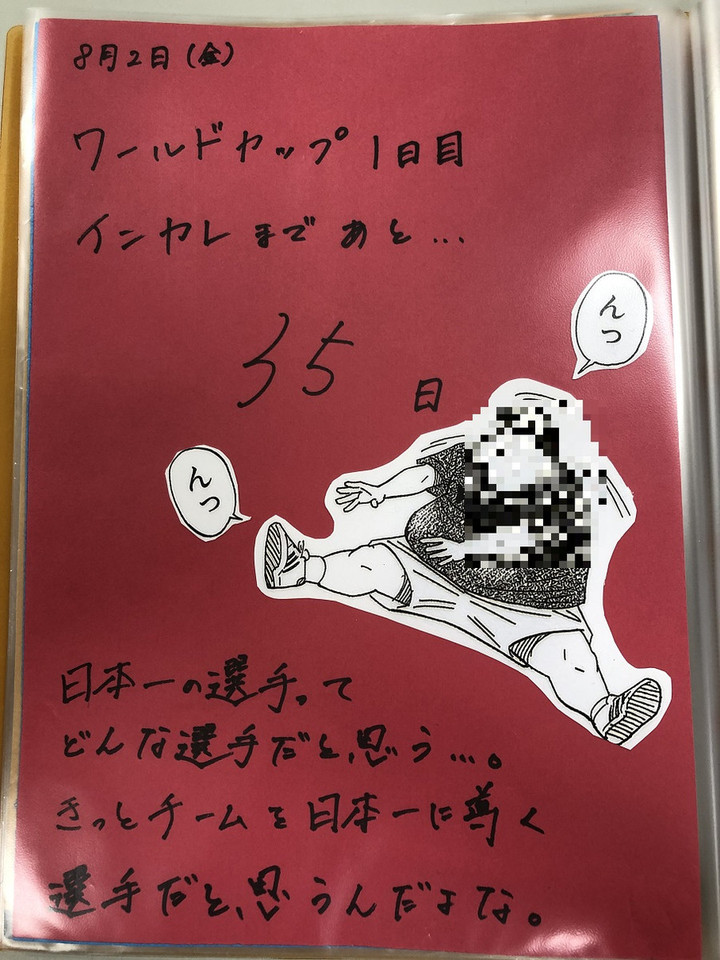 8月2日(金)
ワールドカップ1日目
インカレまであと...
35日
んっ
んっ
日本一の選手って
どんな選手だと、思う...。
きっとチームを日本一に導く
選手だと、思うんだよな。